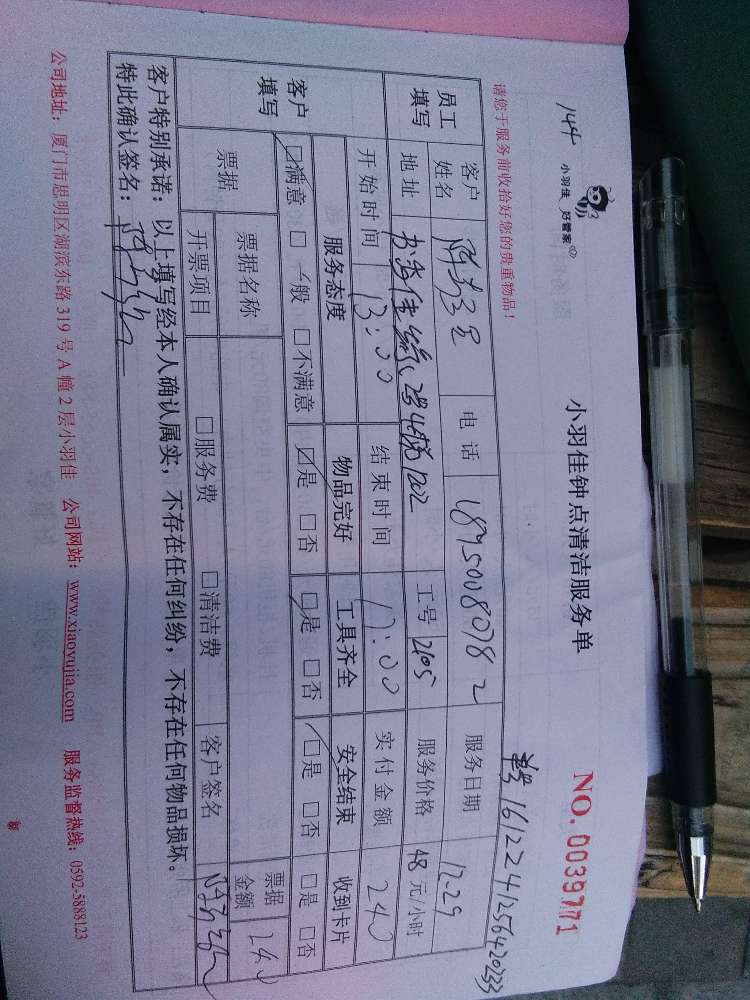 144
小羽佳 好管家
小羽佳钟点清洁服务单
NO. 0039771
单号 161224125642033
请您于服务前收拾好您的贵重物品！
员工填写 客户姓名 电话 18950080782 服务日期 12-29
地址 2号4梯1202 工号 2105 服务价格 48 元/小时
开始时间 13:00 结束时间 17:00 实付金额 240
客户填写 服务态度 物品完好 工具齐全 安全结束 收到卡片
☑满意 □一般 □不满意 ☑是 □否 ☑是 □否 ☑是 □否 □是 □否
票据 票据名称 票据金额 240
开票项目 □服务费 □清洁费 客户签名
客户特别承诺：以上填写经本人确认属实，不存在任何纠纷，不存在任何物品损坏。
特此确认签名：
公司地址：厦门市思明区湖滨东路 319 号 A 幢 2 层小羽佳 公司网站：www.xiaoyujia.com 服务监督热线：0592-5888123